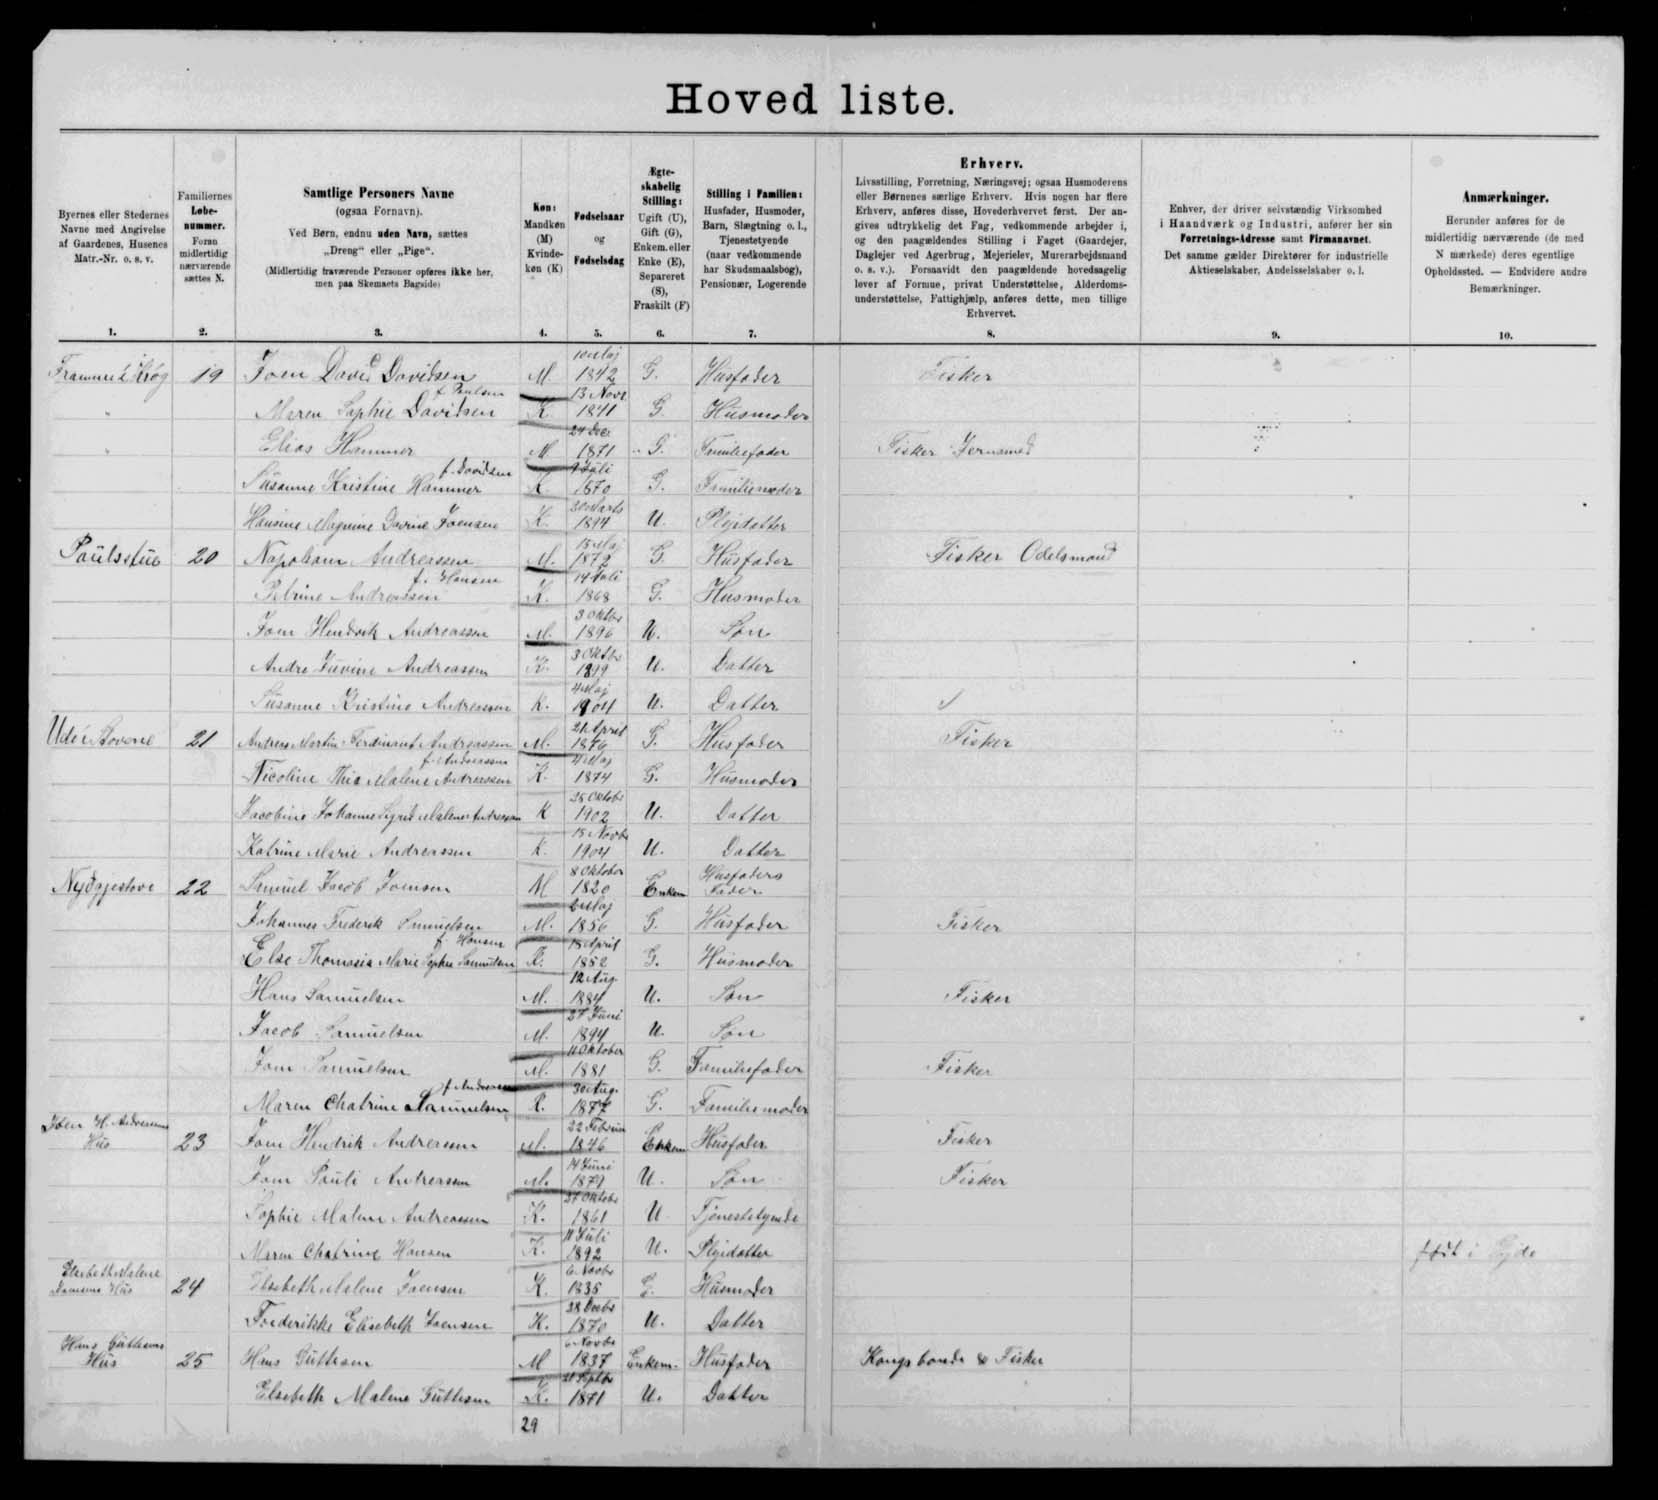 Hoved liste.
Byernes eller Stedernes Navne med Angivelse af Gaardenes, Husenes Matr.-Nr. o. s. v.
1.
Familiernes Løbe-nummer. Foran midlertidig nærværende sættes N.
2.
Samtlige Personers Navne
(ogsaa Fornavn).
Ved Børn, endnu uden Navn, sættes „Dreng“ eller „Pige“.
(Midlertidig fraværende Personer opføres ikke her, men paa Skemaets Bagside)
3.
Køn: Mandkøn (M) Kvinde-køn (K)
4.
Fødselsaar og Fødselsdag
5.
Ægte-skabelig Stilling: Ugift (U), Gift (G), Enkem. eller Enke (E), Separeret (S), Fraskilt (F)
6.
Stilling i Familien: Husfader, Husmoder, Barn, Slægtning o. l., Tjenestetyende (naar vedkommende har Skudsmaalsbog), Pensionær, Logerende
7.
Erhverv.
Livsstilling, Forretning, Næringsvej; ogsaa Husmoderens eller Børnenes særlige Erhverv. Hvis nogen har flere Erhverv, anføres disse, Hovederhvervet først. Der angives udtrykkelig det Fag, vedkommende arbejder i, og den paagældendes Stilling i Faget (Gaardejer, Daglejer ved Agerbrug, Mejerielev, Murerarbejdsmand o. s. v.). Forsaavidt den paagældende hovedsagelig lever af Formue, privat Understøttelse, Alderdoms-understøttelse, Fattighjælp, anføres dette, men tillige Erhvervet.
8.
Enhver, der driver selvstændig Virksomhed i Haandværk og Industri, anfører her sin Forretnings-Adresse samt Firmanavnet. Det samme gælder Direktører for industrielle Aktieselskaber, Andelsselskaber o. l.
9.
Anmærkninger.
Herunder anføres for de midlertidig nærværende (de med N mærkede) deres egentlige Opholdssted. — Endvidere andre Bemærkninger.
10.
Frammi í Króg 19 Joen David Davidsen M. 10 Maj 1842 G. Husfader Fisker
" Maren Sophie Davidsen f. Poulsen K. 13 Novr 1841 G. Husmoder
" Elias Hammer M. 24 Dec 1871 G. Familiefader Fisker Jernsmed
Susanne Kristine Hammer f. Davidsen K. Juli 1870 G. Familiemoder
Hansine Magnine Davine Joensen K. 30 Marts 1894 U. Plejedatter
Paulsstue 20 Napoleon Andreassen M. 15 Maj 1872 G. Husfader Fisker Odelsmand
Petrine Andreassen f. Hansen K. 14 Juli 1868 G. Husmoder
Joen Hendrik Andreassen M. 3 Oktbr 1896 U. Søn
Andre Juvine Andreassen K. 3 Oktbr 1899 U. Datter
Susanne Kristine Andreassen K. 4 Maj 1904 U. Datter
Ude i Stovene 21 Andreas Martin Ferdinant Andreassen M. 21 April 1876 G. Husfader Fisker
Nicoline Thia Malene Andreassen f. Andreassen K. 4 Maj 1874 G. Husmoder
Jacobine Johanne Sigrid Malene Andreassen K 28 Oktobr 1902 U. Datter
Katrine Marie Andreassen K. 15 Novbr 1904 U. Datter
Nyðgjestove 22 Samuel Jacob Joensen M 8 Oktober 1820 Enkem Husfaders Fader
Johannes Frederik Samuelsen M. 2 Maj 1856 G. Husfader Fisker
Else Thomasia Marie Sophie Samuelsen f. Hansen K. 15 April 1852 G. Husmoder
Hans Samuelsen M. 12 Aug. 1884 U. Søn Fisker
Jacob Samuelsen M. 27 Juni 1894 U. Søn
Joen Samuelsen M. 11 Oktober 1881 G. Familiefader Fisker
Maren Chatrine Samuelsen f. Andreassen K. 30 Aug. 1877 G. Familiemoder
Joen H. Andreassens Hus 23 Joen Hendrik Andreassen M. 22 Februar 1846 Enkem Husfader Fisker
Joen Pauli Andreassen M. 14 Juni 1871 U. Søn Fisker
Sophie Malene Andreassen K. 27 Oktobr 1861 U Tjenestetyende
Maren Chatrine Hansen K. 11 Juli 1892 U. Plejedatter født i Gjde
Elsebeth Malene Joensens Hus 24 Elsebeth Malene Joensen K. 6 Novbr 1835 Husmoder
Frederikke Elisebeth Joensen K. 28 Decbr 1870 U. Datter
Hans Guttesens Hus 25 Hans Guttesen M Novbr 1837 Enkem. Husfader Kongsbonde & Fisker
Elsebeth Malene Guttesen K. 21 Septbr 1871 U. Datter
29